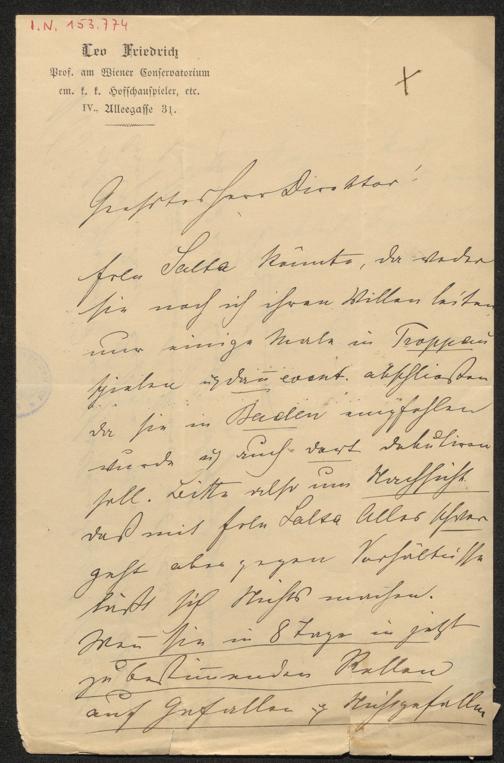 I.N. 153.774
Leo Friedrich
Prof. am Wiener Conservatorium
em. k. k. Hofschauspieler, etc.
IV., Alleegasse 31.
Geehrter Herr Direktor!
Frln Salta könnte, da weder
sie noch ich ihren Willen leiten
nur einige Male in Troppau
spielen u dañ event. abschließen
da sie in Baden empfohlen
wurde u auch dort debutiren
soll. Bitte also um Nachsicht
daß mit Frln Salta Alles schwer
geht aber gegen Verhältnisse
läßt sich Nichts machen.
Weñ sie in 8 Tage in jetzt
zu bestim̄enden Rollen
auf Gefallen u Nichtgefallen